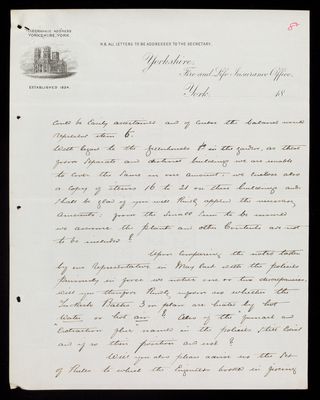 TELEGRAPHIC ADDRESS
YORKSHIRE, YORK.
ESTABLISHED 1824.
N.B. ALL LETTERS TO BE ADDRESSED TO THE SECRETARY.
Yorkshire
Fire and Life Insurance Office,
York 18
could be easily ascertained and of course the balance would
represent item 6.
With regard to the Greenhouses &c in the garden, as these
form separate and distinct buildings we are unable
to cover the same in one amount; we enclose also
a copy of items 16 to 21 on these buildings and
shall be glad if you will kindly append the necessary
amounts: from the small sum to be insured
we assume the plants and other contents are not
to be included?
Upon comparing the notes taken
by our Representative in May last with the policies
presently in force we notice one or two discrepancies.
Will you therefore kindly inform us whether the
Turkish Baths 3 on plan are heated by hot
water or hot air? Also if the
Extraction named in the policies still exist
and if so their position and use?
Will you also please advise us the
of to which the Engineer looked in